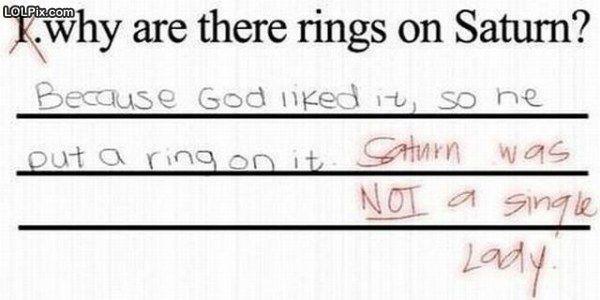 LOLPix.com
1.why are there rings on Saturn?
Because God liked it, so he
put a ring on it. Saturn was
NOT a single
Lady.